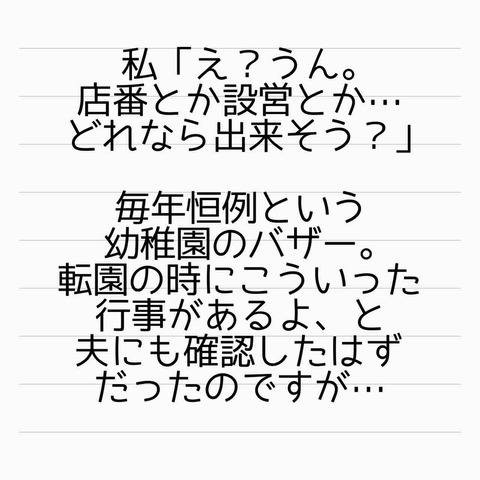 私「え？うん。
店番とか設営とか…
どれなら出来そう？」
毎年恒例という
幼稚園のバザー。
転園の時にこういった
行事があるよ、と
夫にも確認したはず
だったのですが…